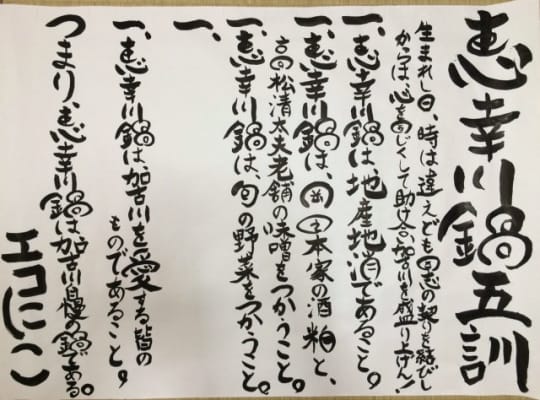 恵幸川鍋五訓
生まれし日、時は違えども同志の契りを結びし
からは、心を同じくして助け合い加古川を盛り上げん!
一、恵幸川鍋は、地産地消であること。
一、恵幸川鍋は、岡田本家の酒粕と、
高松清太夫老舗の味噌をつかうこと。
一、恵幸川鍋は、旬の野菜をつかうこと。
一、
一、恵幸川鍋は、加古川を愛する皆の
ものであること。
つまり、恵幸川鍋は加古川自慢の鍋である。
エコにこ